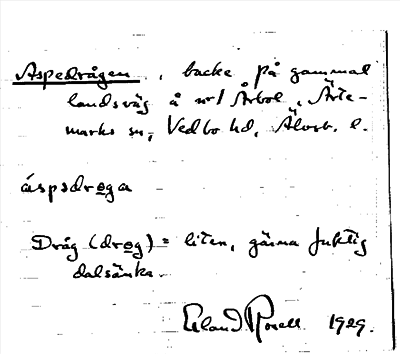 Aspedrågen, backe på gammal
landsväg å nr 1 Årbol, Ärte-
marks sn, Vedbo hd, Älvsb. l.
áspsdrøga
Dråg (drøg) = liten, gärna fuktig
dalsänka.
Erland Rosell 1929.